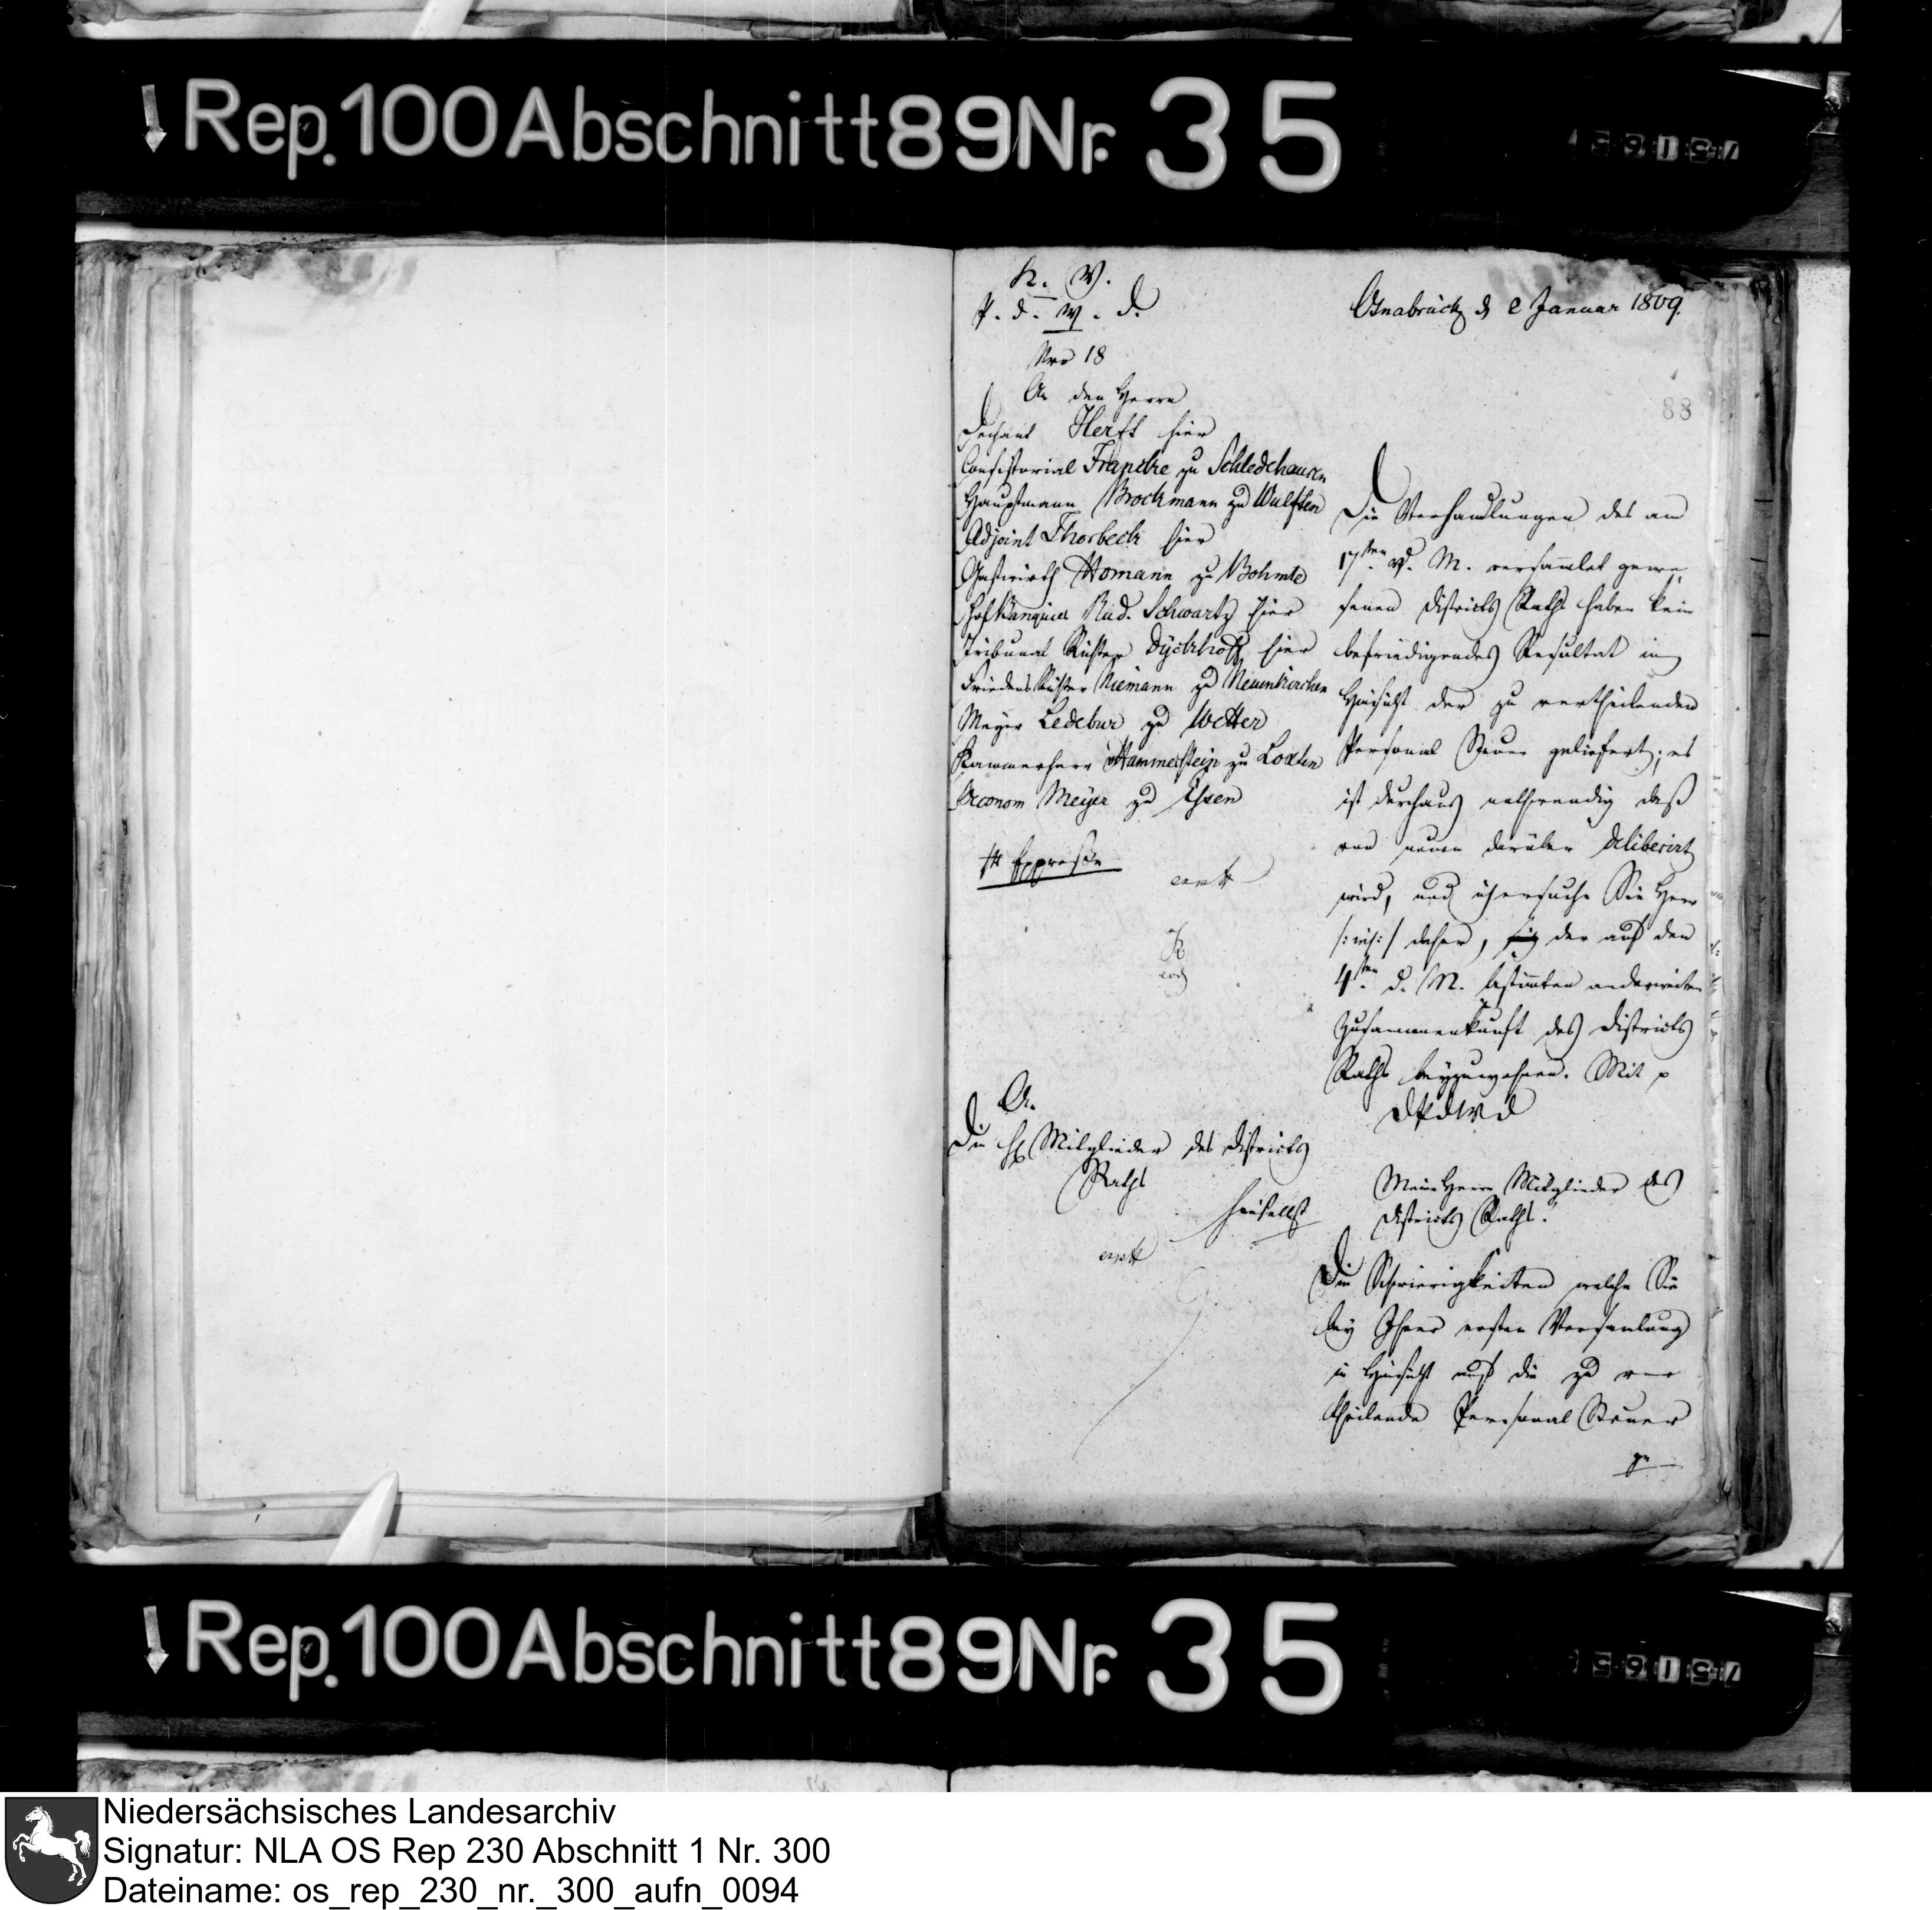 Rep. 100 Abschnitt 89 Nr. 35
75165
K. W.
P. d. W. D.
Osnabrück d 2 Januar 1809.
Nro 18
88
An den Herrn
Dechant Herft hier
Consistorial Francke zu Schledehausen
Hauptmann Brockmann zu Wulften
Adjoint Thorbeck hier
Gastwirth Homann zu Bohmte
Hof Banquier Rud. Schwartz hier
Tribunal Richter Dyckhoff hier
Friedens Richter Niemann zu Neuenkirchen
Meyer Ledebur zu Wetter
Kammerherr v Hammerstein zu Loxten
Oeconom Meyer zu Essen
pr Expressen
exp
An
Die H Mitglieder des Districts
Raths
hieselbst
exp
Die Verhandlungen des am
17ten v. M. versamlet gewe
senen Districts Raths haben kein
befriedigendes Resultat in
Hinsicht der zu vertheilenden
Personal Steuer geliefert; es
ist durchaus nothwendig daß
von neuen darüber deliberirt
wird, und ich ersuche Sie Herr
/: ins: / daher, der auf den
4ten d. M. bestimten anderweiten
Zusammenkunft des Districts
Raths beyzuwohnen. Mit p
DPdWD
Meine Herrn Mitglieder des
Districts Raths!
Die Schwierigkeiten welche Sie
bey Ihrer ersten Versamlung
in Hinsicht auf die zu ver
theilende Personal Steuer
Rep. 100 Abschnitt 89 Nr. 35
75165
Niedersächsisches Landesarchiv
Signatur: NLA OS Rep 230 Abschnitt 1 Nr. 300
Dateiname: os_rep_230_nr._300_aufn_0094